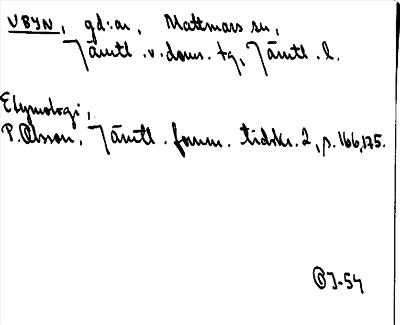 VBYN, gd:ar, Mattmars sn,
Jämtl. v. doms. tg, Jämtl. l.
Etymologi,
P. Olsson, Jämtl. fornm. tidskr. 2, s. 166, 175.
J-54